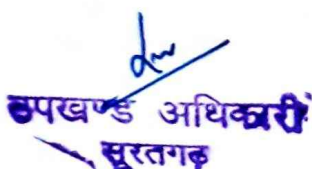 उपखण्ड अधिकारी
सूरतगढ़